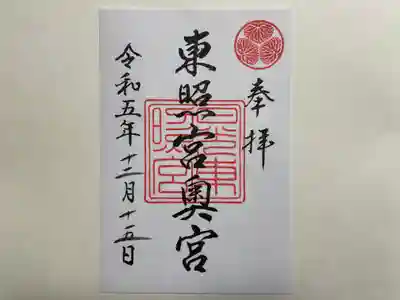 奉拝
東照宮奥宮
令和五年十二月十五日